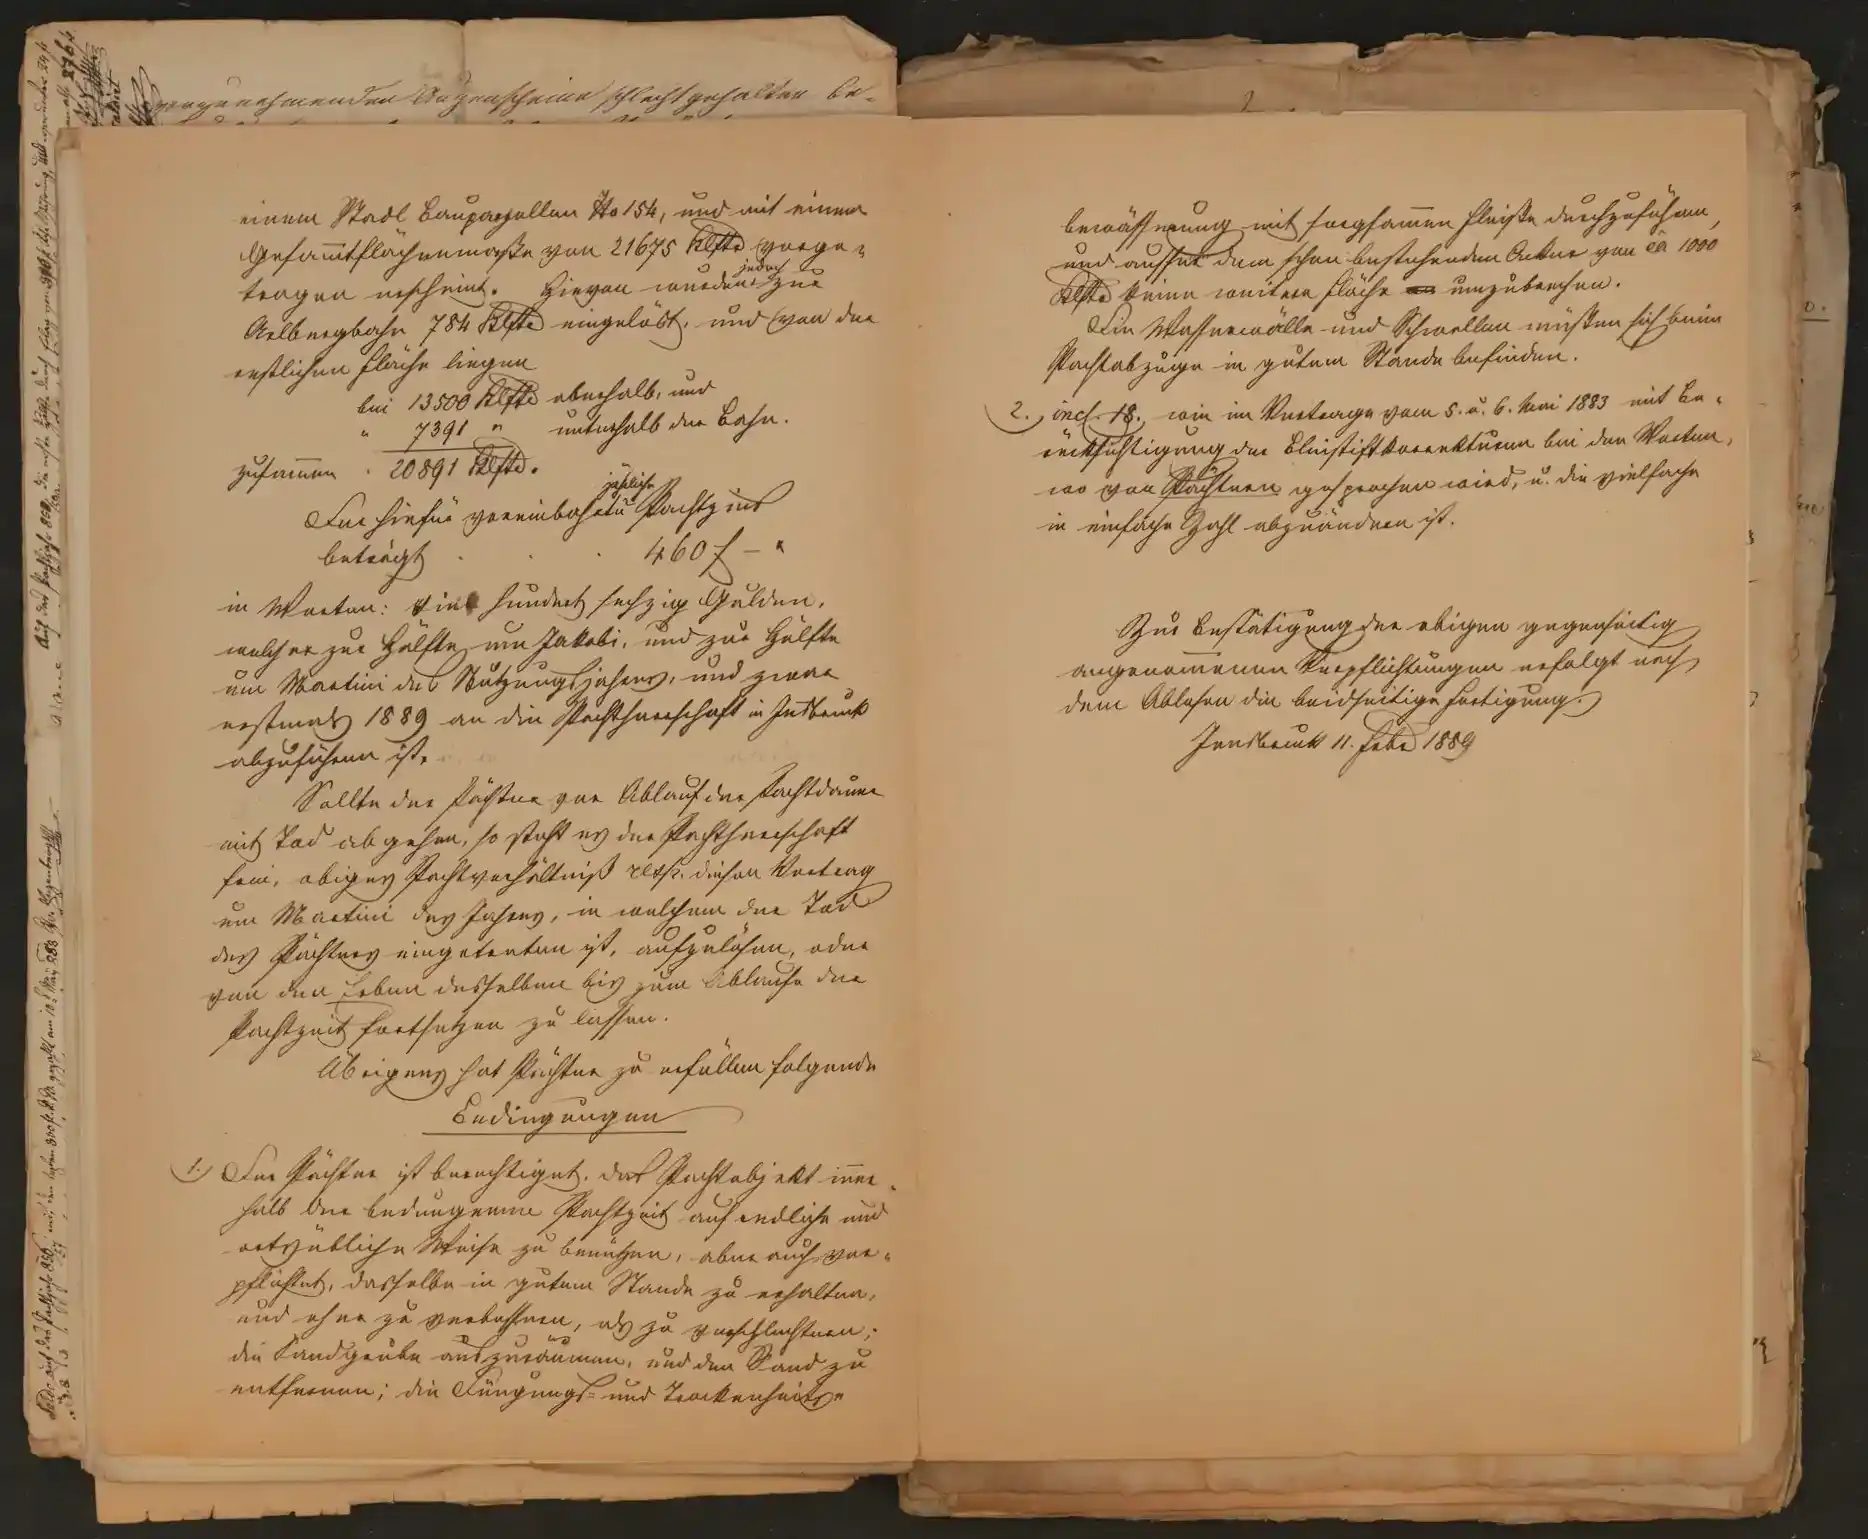 vorzunehmenden Augenscheine schlecht gehalten be-
einem Stadl Bauparzellen No 154, und mit einem
Gesammtflächenmaße von 21675 Klftr vorge-
tragen erscheint. Hievon wurden jedoch zur
Arlbergbahn 784 Klftr eingelöst, und von der
restlichen Fläche liegen
bei 13500 Klftr oberhalb, und
" 7391 " unterhalb der Bahn.
zusammen 20891 Klftr.
Der hiefür vereinbarte jährliche Pachtzins
beträgt . . 460 f – "
in Worten: Vier hundert sechzig Gulden,
welcher zur Hälfte um Jakobi, und zur Hälfte
um Martini des Nutzungsjahres, und zwar
erstmals 1889 an die Pachtherrschaft in Insbruck
abzuführen ist.
Sollte der Pächter vor Ablauf der Pachtdauer
mit Tod abgehen, so steht es der Pachtherrschaft
frei, obiges Pachtverhältniß resp. diesen Vertrag
um Martini des Jahres, in welchem der Tod
des Pächters eingetreten ist, aufzulösen, oder
von den Erben desselben bis zum Ablaufe der
Pachtzeit fortsetzen zu lassen.
Übrigens hat Pächter zu erfüllen folgende
Bedingungen
1. Der Pächter ist berechtiget, das Pachtobjekt inner-
halb der bedungenen Pachtzeit auf redliche und
ortsübliche Weise zu benützen, aber auch ver-
pflichtet, dasselbe in gutem Stande zu erhalten,
und eher zu verbessern, als zu verschlechtern;
die Sandgrube auszuräumen, und den Sand zu
entfernen; die Düngungs- und Trockenheits-
bewässerung mit sorgsamen Fleiße durchzuführen,
und ausser dem schon bestehenden Acker von ca 1000
Klftr keine weitere Fläche umzubrechen.
Die Wasserwälle und Schwellen müßen sich beim
Pachtabzuge in gutem Stande befinden.
2. incl. 18. wie im Vertrage vom 5. u. 6. Mai 1883 mit Be-
rücksichtigung der Bleistiftkorrekturen bei den Worten,
wo von Pächtern gesprochen wird, u. die vielfache
in einfache Zahl abzuändern ist.
Zur Bestätigung der obigen gegenseitig
angenommenen Verpflichtungen erfolgt nach
dem Ablesen die beidseitige Fertigung.
Innsbruck 11. Febr 1889